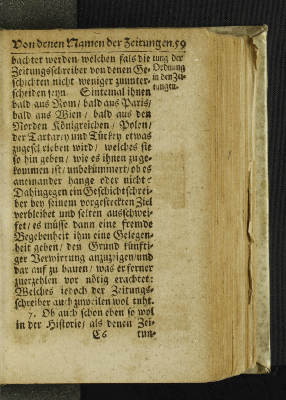 Von denen Namen der Zeitungen. 59
bachtet werden welchen fals die
Zeitungsschreiber von denen Ge-
schichten nicht weniger zuunter-
scheiden seyn. Sintemal ihnen
bald aus Rom/ bald aus Paris/
bald aus Wien/ bald aus den
Norden Königreichen/ Polen/
der Tartarey und Türkey etwas
zugeschrieben wird/ welches sie
so hin geben/ wie es ihnen zuge-
kommen ist/ unbekümmert/ ob es
aneinander hange oder nicht:
Dahingegen ein Geschichtschrei-
ber bey seinem vorgesteckten Ziel
verbleibet und selten ausschwei-
fet/ es müsse dann eine fremde
Begebenheit ihm eine Gelegen-
heit geben/ den Grund künfti-
ger Verwirrung anzuzeigen/und
dar auf zu bauen/ was er ferner
zuerzehlen vor nötig erachtet:
Welches jedoch der Zeitungs-
schreiber auch zuweilen wol tuht.
7. Ob auch schon eben so wol
in der Historie/ als denen Zei-
C6 tun-
tung der
Ordnung
in den Zei-
tungen.